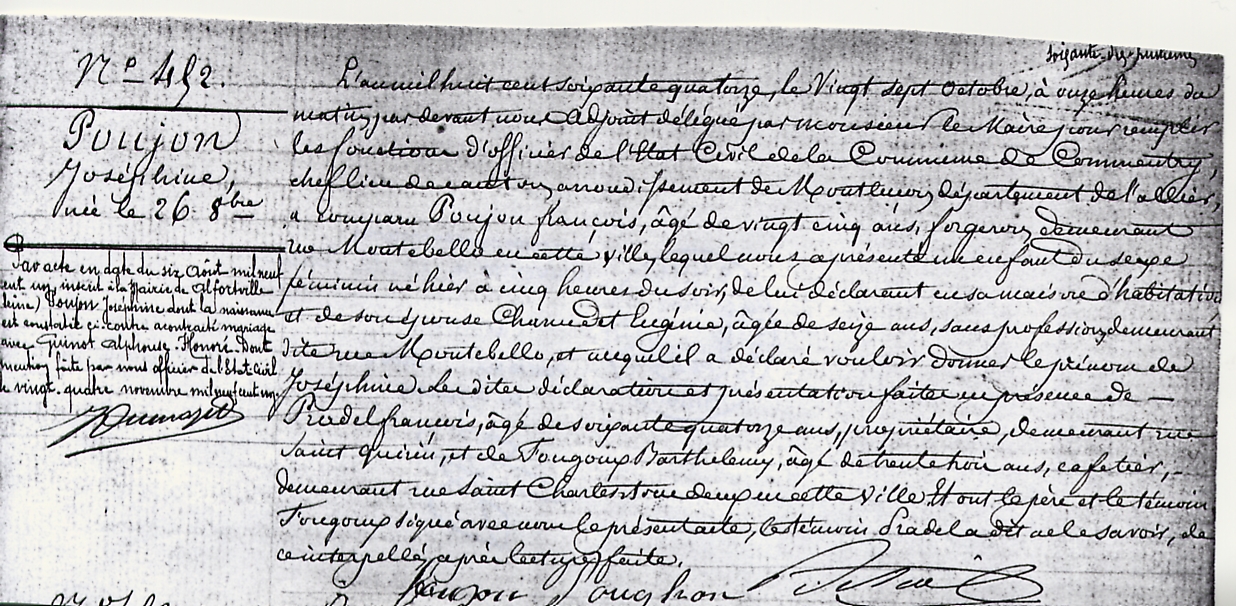 N° 452.
Poujon
Joséphine,
née le 26 8bre
Par acte en date du six août mil neuf
cent un inscrit à la Mairie de Alfortville
(Seine) Poujon Joséphine dont la naissance
est constatée ci-contre a contracté mariage
avec Guinot Alphonse Honoré. Dont
mention faite par nous officier de l'Etat civil
le vingt-quatre novembre mil neuf cent un
L'an mil huit cent soixante quatorze, le Vingt sept Octobre, à onze heures du
matin, par devant nous Adjoint délégué par monsieur le Maire pour remplir
les fonctions d'officier de l'Etat Civil de la Commune de Commentry,
chef lieu de canton, arrondissement de Montluçon, département de l'allier,
a comparu Poujon françois, âgé de vingt cinq ans, forgeron, demeurant
rue Montebello en cette ville, lequel nous a présenté un enfant du sexe
féminin né hier à cinq heures du soir, de lui déclarant en sa maison d'habitation
et de son épouse Eugénie, âgée de seize ans, sans profession, demeurant
dite rue Montebello, et auquel il a déclaré vouloir donner le prénom de
Joséphine. Les dites déclaration et présentation faites en présence de —
Pradel francois, âgé de soixante quatorze ans, propriétaire, demeurant rue
Saint Quirin, et de Barthelemy, âgé de trente trois ans, cafetier, -
demeurant rue Saint Charles tous deux en cette ville Et ont le père et le témoin
signé avec nous le présent acte, le témoin Pradel a dit ne le savoir, de
ce interpellé, après lecture faite.
Poujon